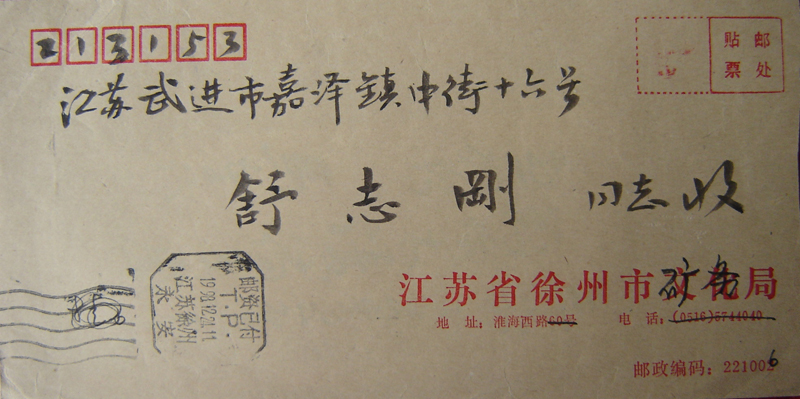 213153
贴 邮
票 处
江苏武进市嘉泽镇中街十六号
舒志刚 同志收
邮资已付
T.P.
江苏徐州
江苏省徐州市矿务局
地 址：淮海西路60号 电 话：(0516)5744040
邮政编码：221006